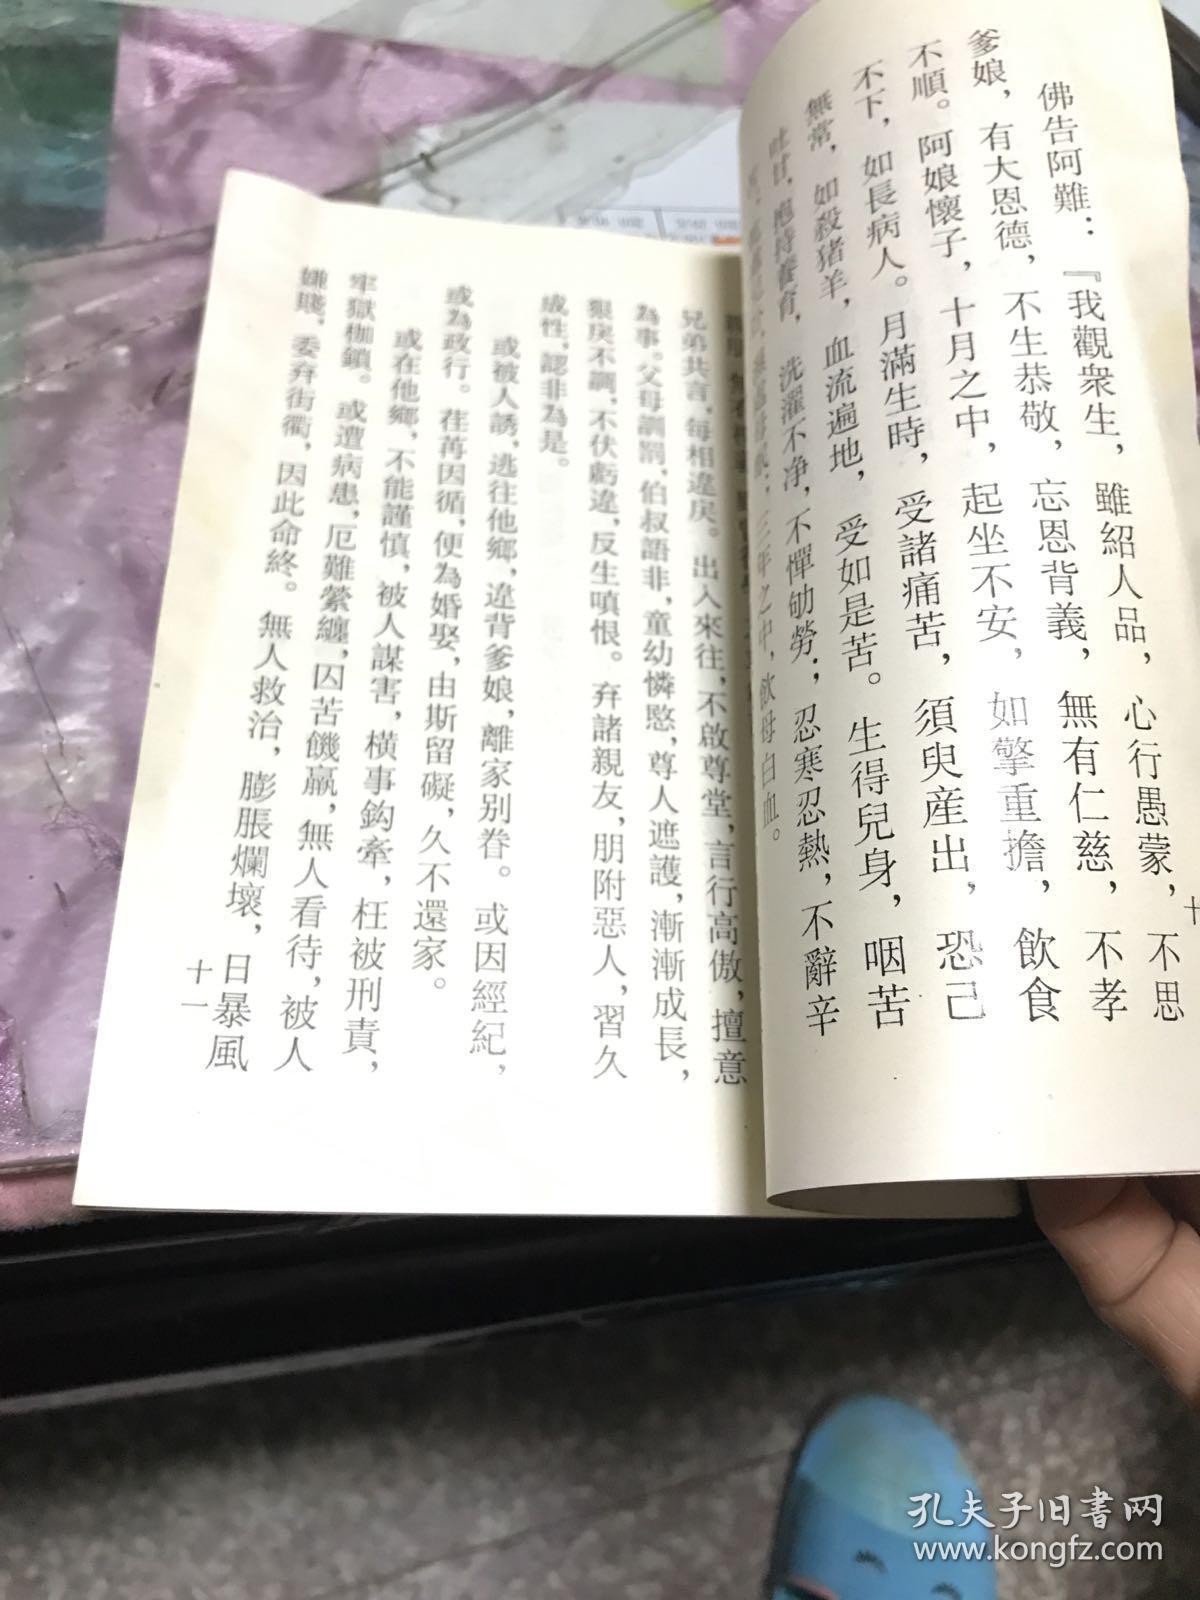 佛告阿難：『我觀衆生，雖紹人品，心行愚蒙，不思
爹娘，有大恩德，不生恭敬，忘恩背義，無有仁慈，不孝
不順。阿娘懷子，十月之中，起坐不安，如擎重擔，飲食
不下，如長病人。月滿生時，受諸痛苦，須臾産出，恐己
無常，如殺猪羊，血流遍地，受如是苦。生得兒身，咽苦
吐甘，抱持養育，洗濯不净，不憚劬勞；忍寒忍熱，不辭辛
三年之中，飲母白血。
十
兄弟共言，每相違戾。出入來往，不啟尊堂，言行高傲，擅意
為事。父母訓罰，伯叔語非，童幼憐愍，尊人遮護，漸漸成長，
狠戾不調，不伏虧違，反生嗔恨。弃諸親友，朋附惡人，習久
成性，認非為是。
或被人誘，逃往他鄉，違背爹娘，離家别眷。或因經紀，
或為政行。荏苒因循，便為婚娶，由斯留礙，久不還家。
或在他鄉，不能謹慎，被人謀害，橫事鈎牽，枉被刑責，
牢獄枷鎖。或遭病患，厄難縈纏，囚苦饑羸，無人看待，被人
嫌賤，委弃街衢，因此命終。無人救治，膨脹爛壞，日暴風
十一
孔夫子旧书网
www.kongfz.com